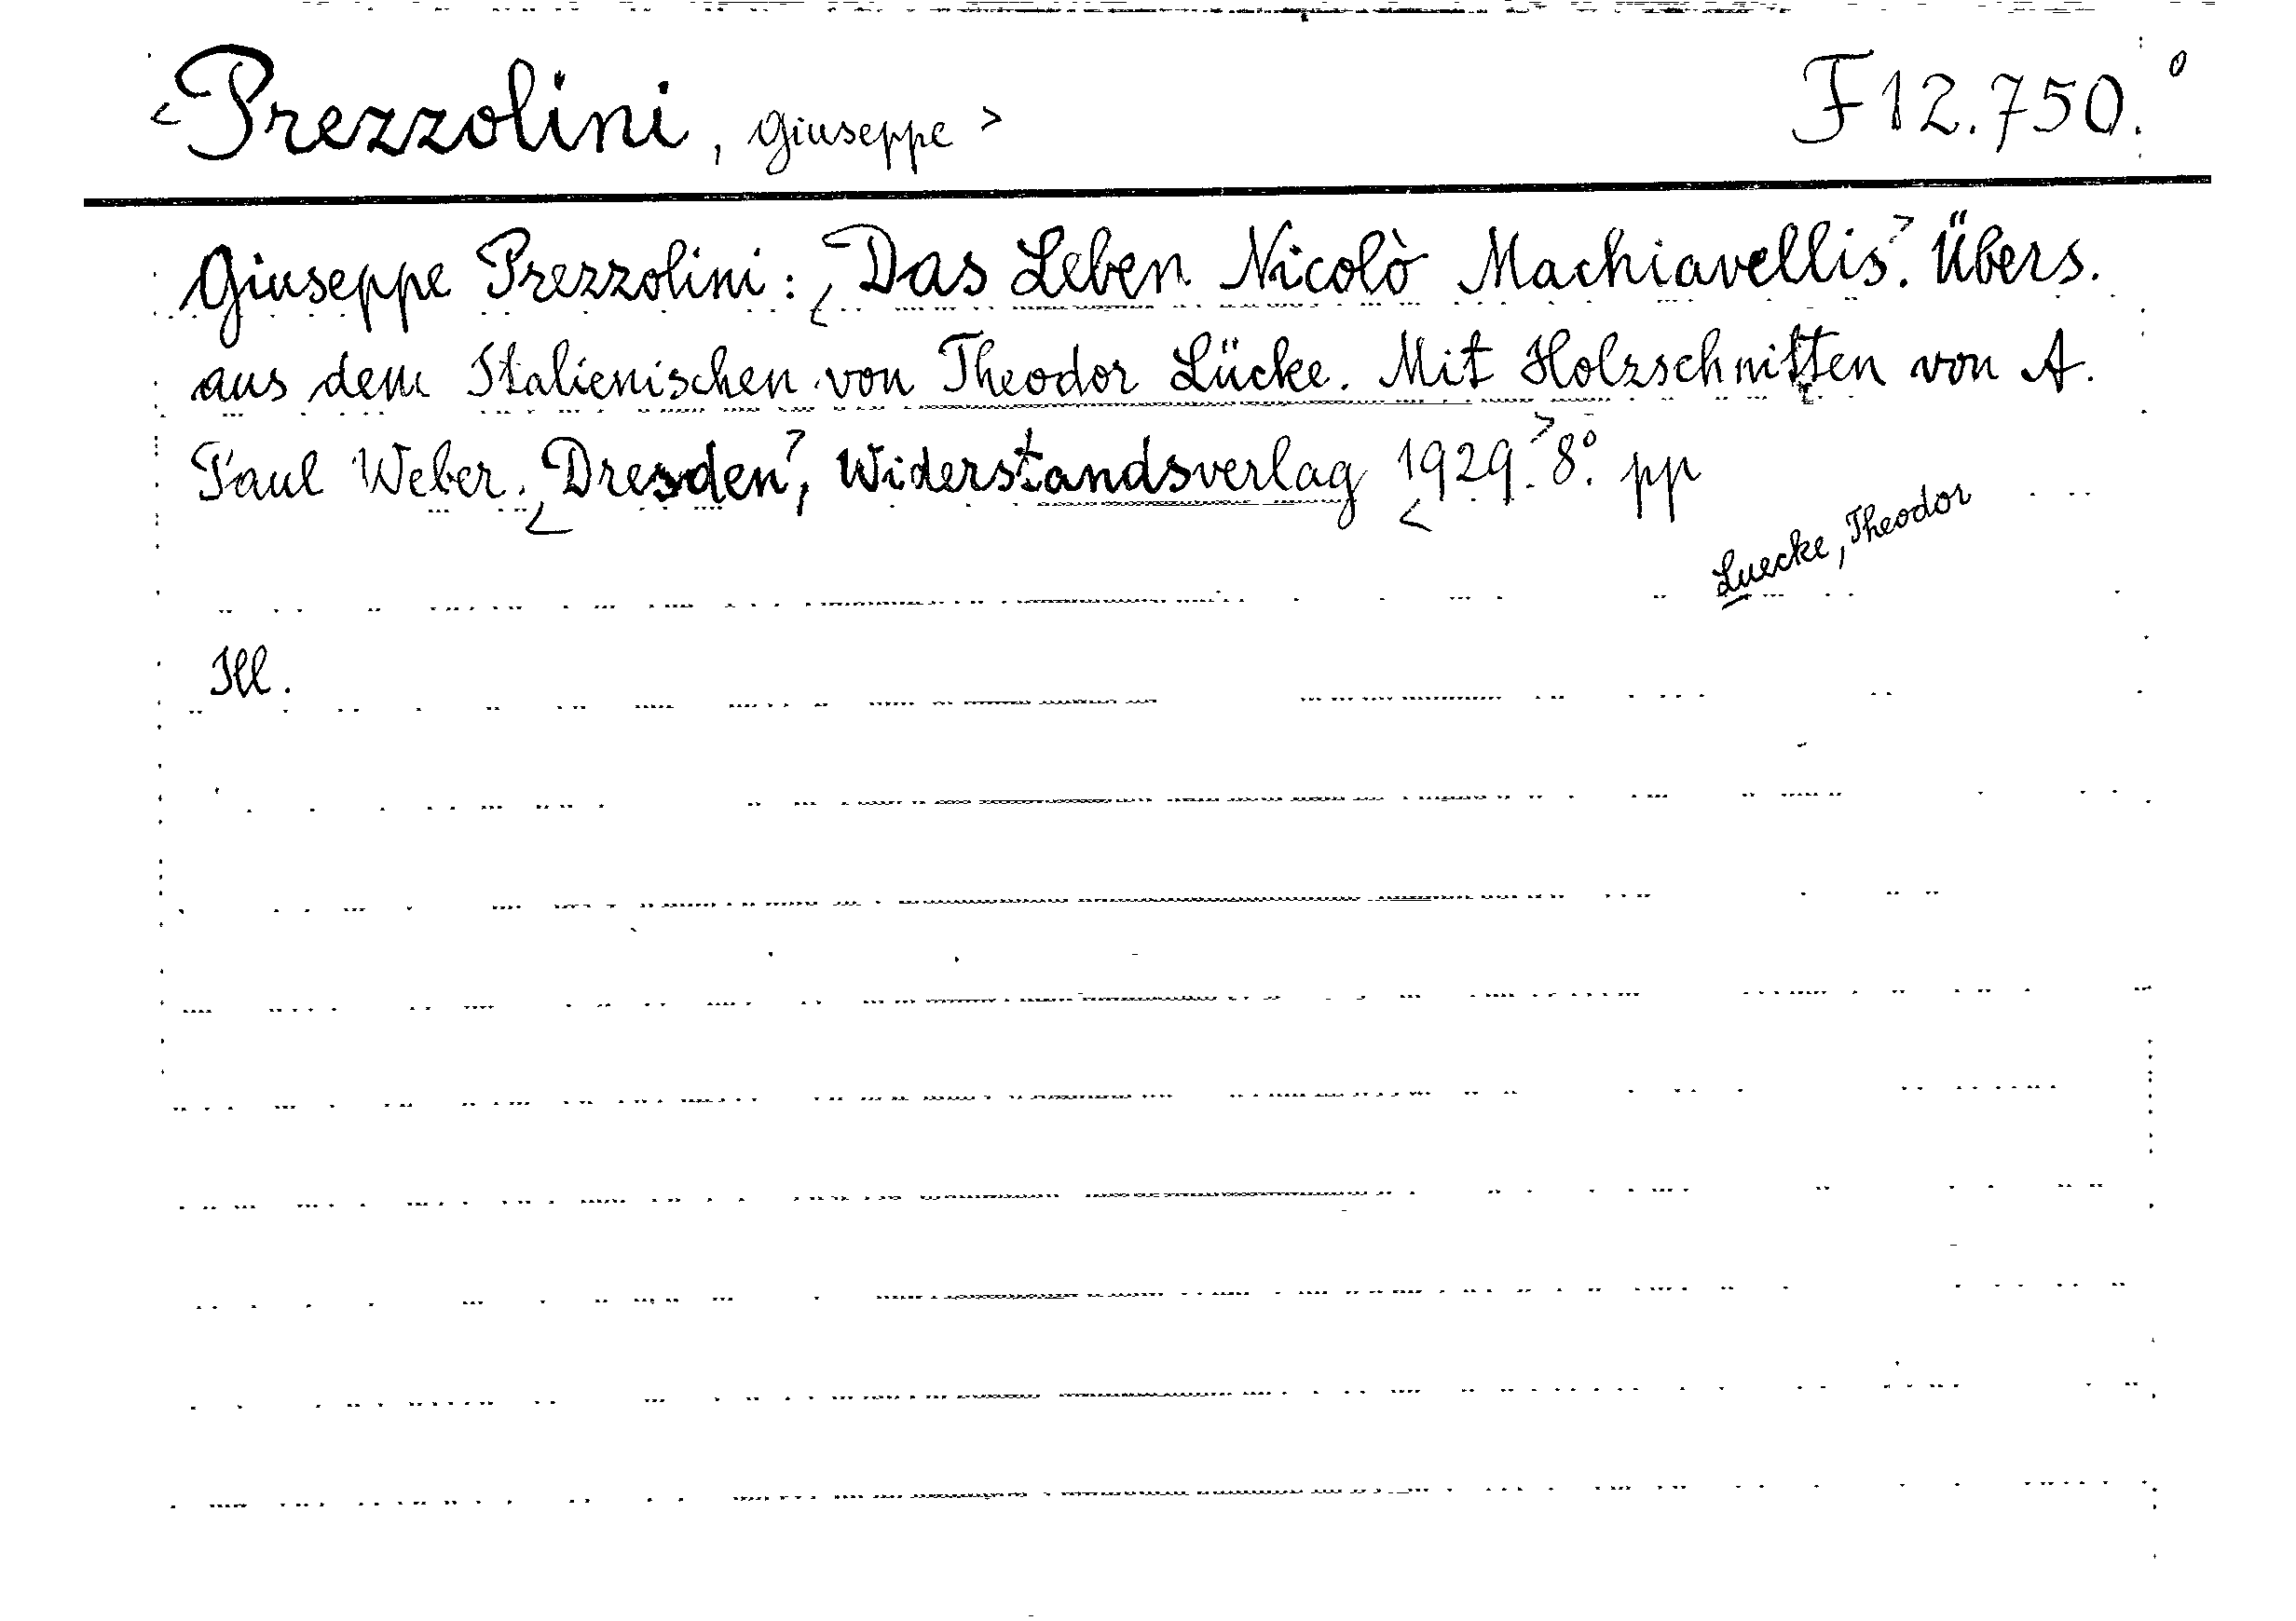 <Prezzolini, Giuseppe> F 12.750.⁰
Giuseppe Prezzolini: <Das Leben Nicolò Machiavellis>. Übers.
aus dem Italienischen von Theodor Lücke. Mit Holzschnitten von A.
Paul Weber. <Dresden>, Widerstandsverlag <1929.> 8⁰. pp
Luecke, Theodor
Ill.